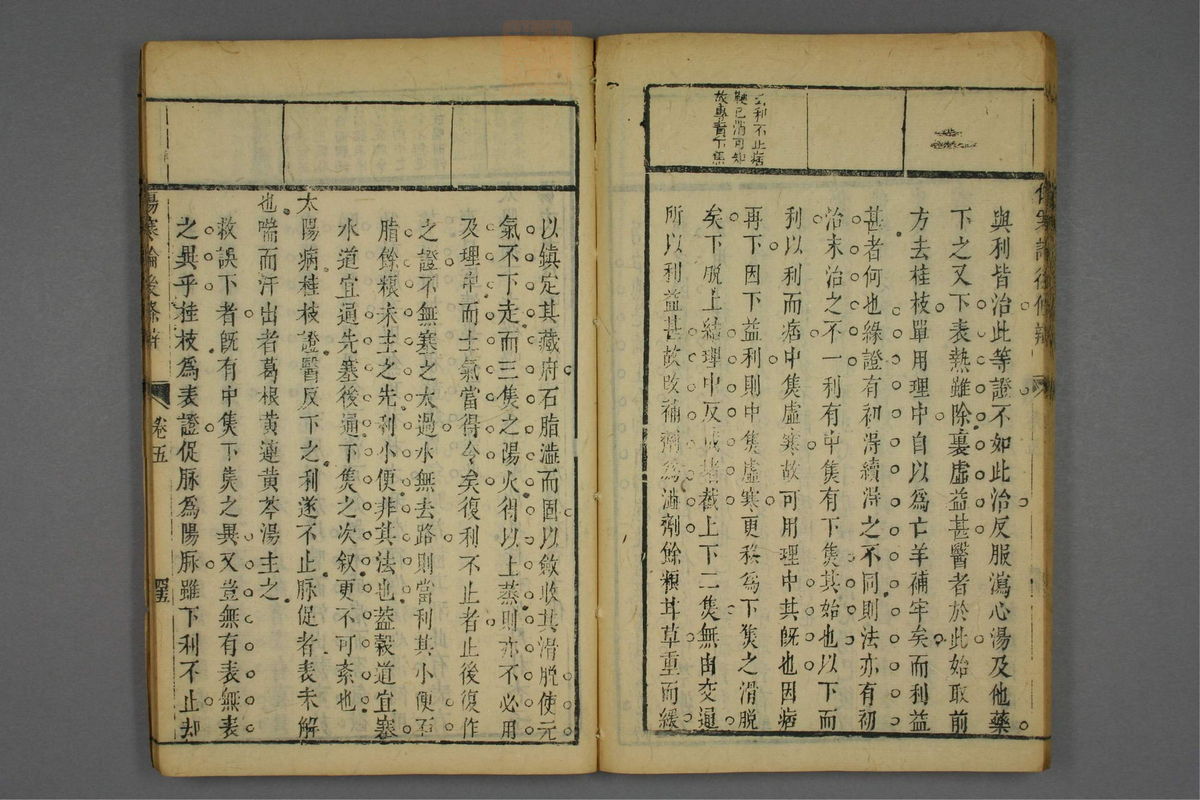 利不止痞
鞕已消可知
故專責下焦
與利皆治此等證不如此治反服瀉心湯及他藥
下之又下表熱雖除裏虛益甚醫者於此始取前
方去桂枝單用理中自以爲亡羊補牢矣而利益
甚者何也緣證有初淂續淂之不同則法亦有初
治末治之不一利有中焦有下焦其始也以下而
利以利而痞中焦虛寒故可用理中其旣也因痞
再下因下益利則中焦虛寒更移爲下焦之滑脫
矣下脫上結理中反成堵截上下二焦無由交通
所以利益甚故改補劑爲濇劑餘粮甘草重而緩
以鎮定其藏府石脂濇而固以斂收其滑脫使元
氣不下走而三焦之陽火得以上蒸則亦不必用
及理中而土氣當得令矣復利不止者止後復作
之證不無塞之太過水無去路則當利其小便至
脂餘粮未主之先利小便非其法也蓋穀道宜塞
水道宜通先塞後通下焦之次叙更不可紊也
太陽病桂枝證醫反下之利遂不止脉促者表未解
也喘而汗出者葛根黃連黃芩湯主之
救誤下者旣有中焦下焦之異又豈無有表無表
之異乎桂枝爲表證促脉爲陽脉雖下利不止却
傷寒論後條辯
卷五